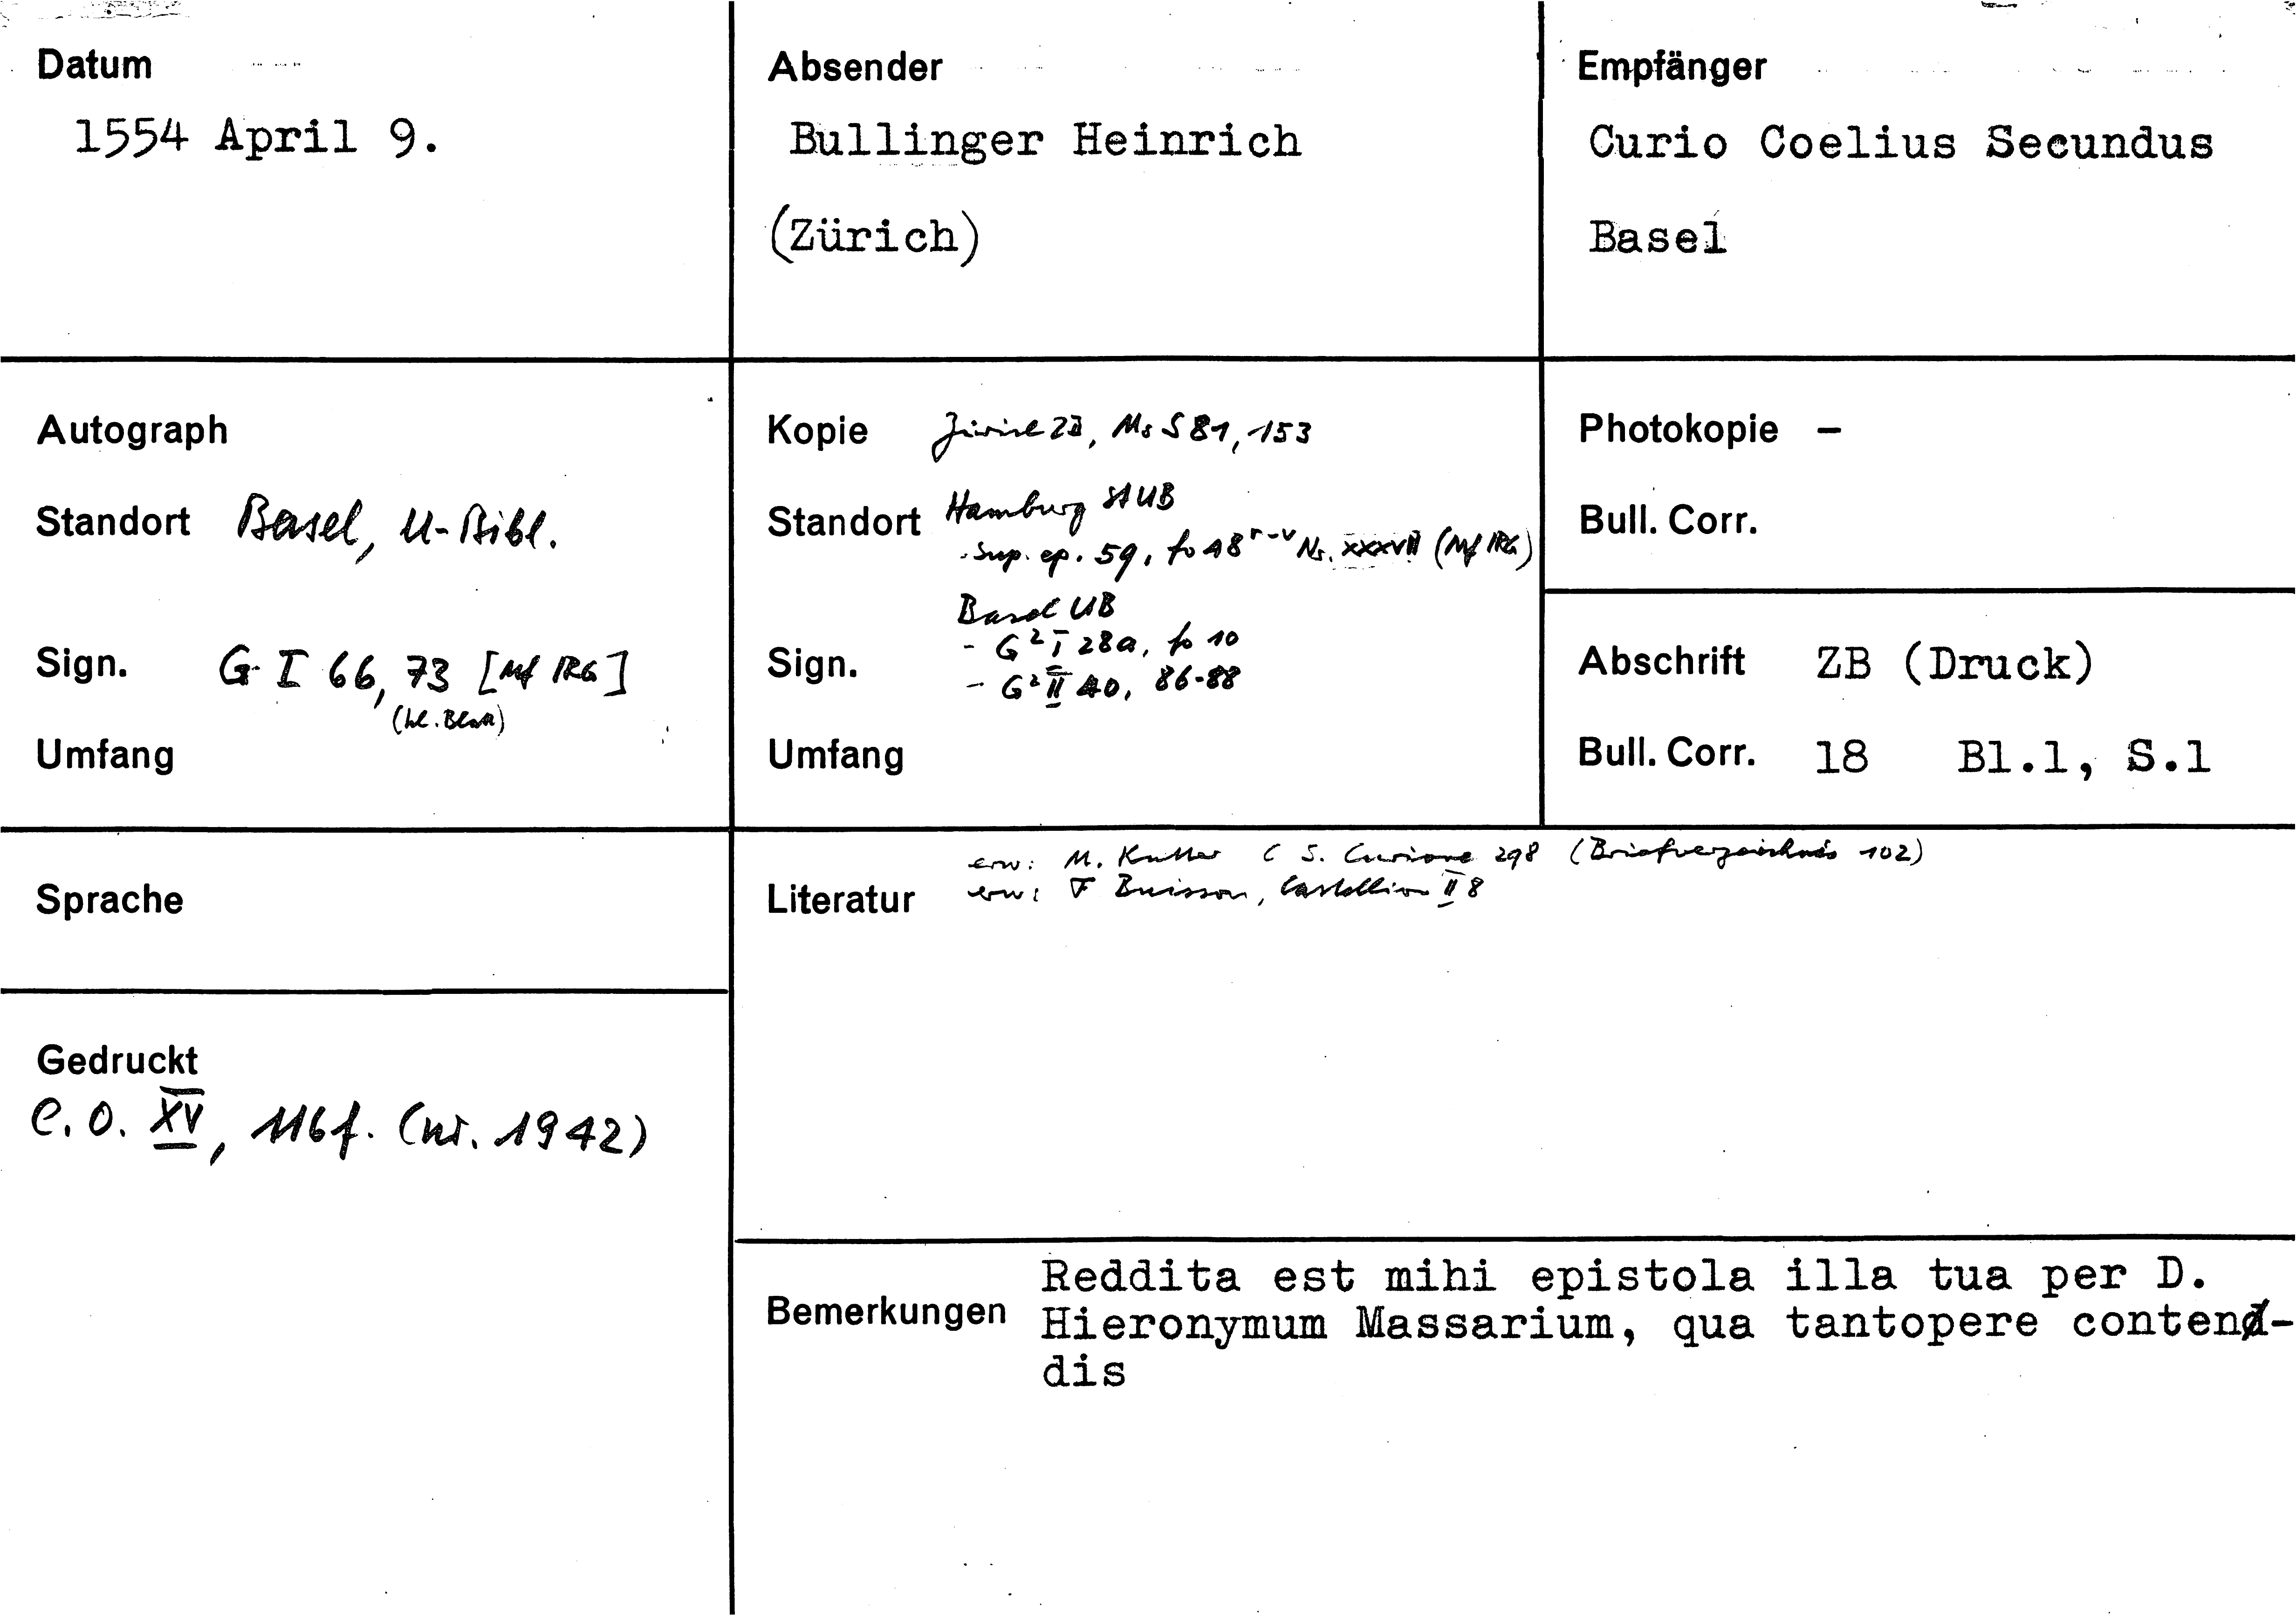 Datum
1554 April 9.
Absender
Bullinger Heinrich
(Zürich)
Empfänger
Curio Coelius Secundus
Basel
Autograph
Standort Basel, U-Bibl.
Sign. G I 66, 73 [Mf IRG]
(kl. Blatt)
Umfang
Kopie Zürich ZB, Ms S 81, 153
Standort Hamburg StUB
- Sup. ep. 59, fo 48 r-v Nr. XXXVII (Mf IRG)
Basel UB
- G² I 28a, fo 10
Sign. - G² II 40, 86-88
Umfang
Photokopie –
Bull. Corr.
Abschrift ZB (Druck)
Bull. Corr. 18 Bl.1, S.1
Sprache
Gedruckt
C. O. XV, 116f. (nr. 1942)
erw: M. Kutter C S. Curione 298 (Briefverzeichnis 102)
Literatur erw: F Buisson, Castellion II 8
Bemerkungen
Reddita est mihi epistola illa tua per D.
Hieronymum Massarium, qua tantopere conten-
dis